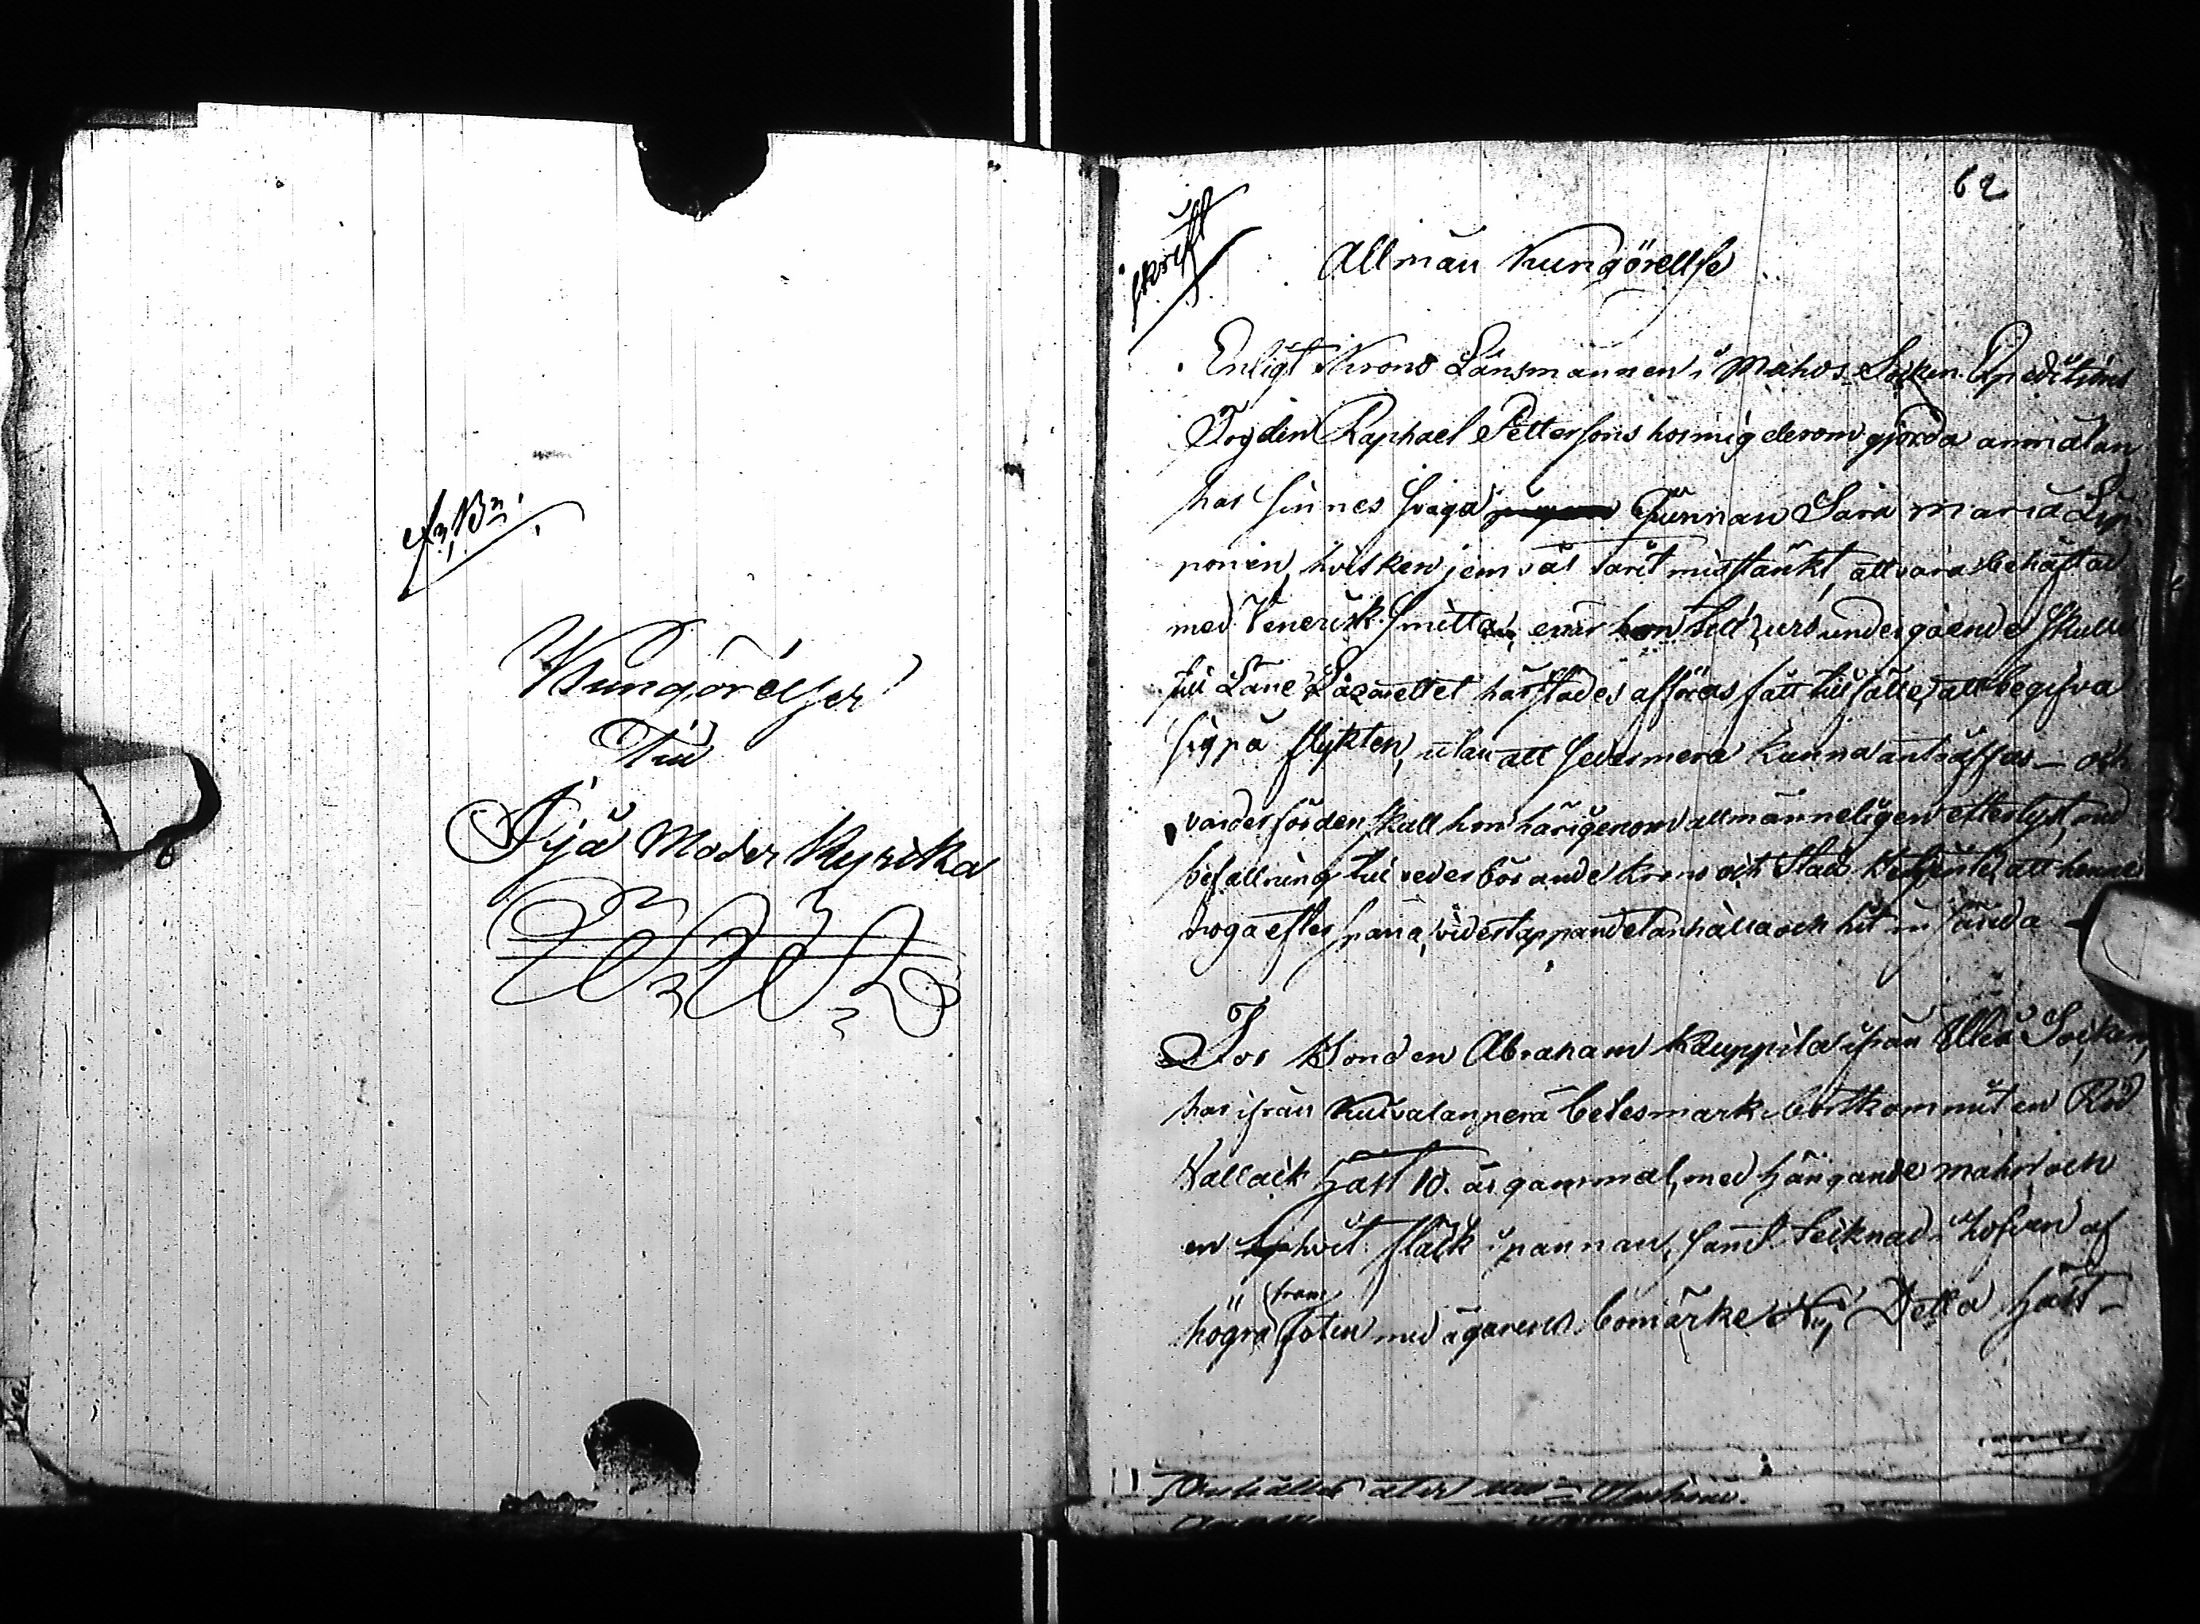 Kungörelser
Till
Ijå Moder Kyrcka
62
skrifft
Allmän Kungörellse
Enligt Krono Länsmannen i Muhos Socken Expeditions
Fogden Raphael Pettersons hos mig derom gjorda anmälan
har sinnes svaga Qvinnan Sara Maria Lyp
ponen, hvilken jemväl varit misstänkt att vara behäftad
med Venerisk smitta, enär hon tid curs undergående skulle
till Läne Lazarettet härstädes afföras fått tillfälle, att begifva
sig på flykten, utan att sedermera kunna anträffas – och
varder förden skull hon härigenom allmänneligen efterlyst, med
befallning till vederbörande Krono och Stads Betjente, att henne
noga efterspana, vid ertappandet anhålla och hit insända
For Bonden Abraham Kauppila ifrån Uleå Socken,
har ifrån Kuivalanperä betesmark bortkommit en Röd
Vallack Häst 10. år gammal, med hängande mahn och
en hvit fläck i pannan, samt tecknad i hofven af
högra fram foten med ägarens bomärke Detta Häst-